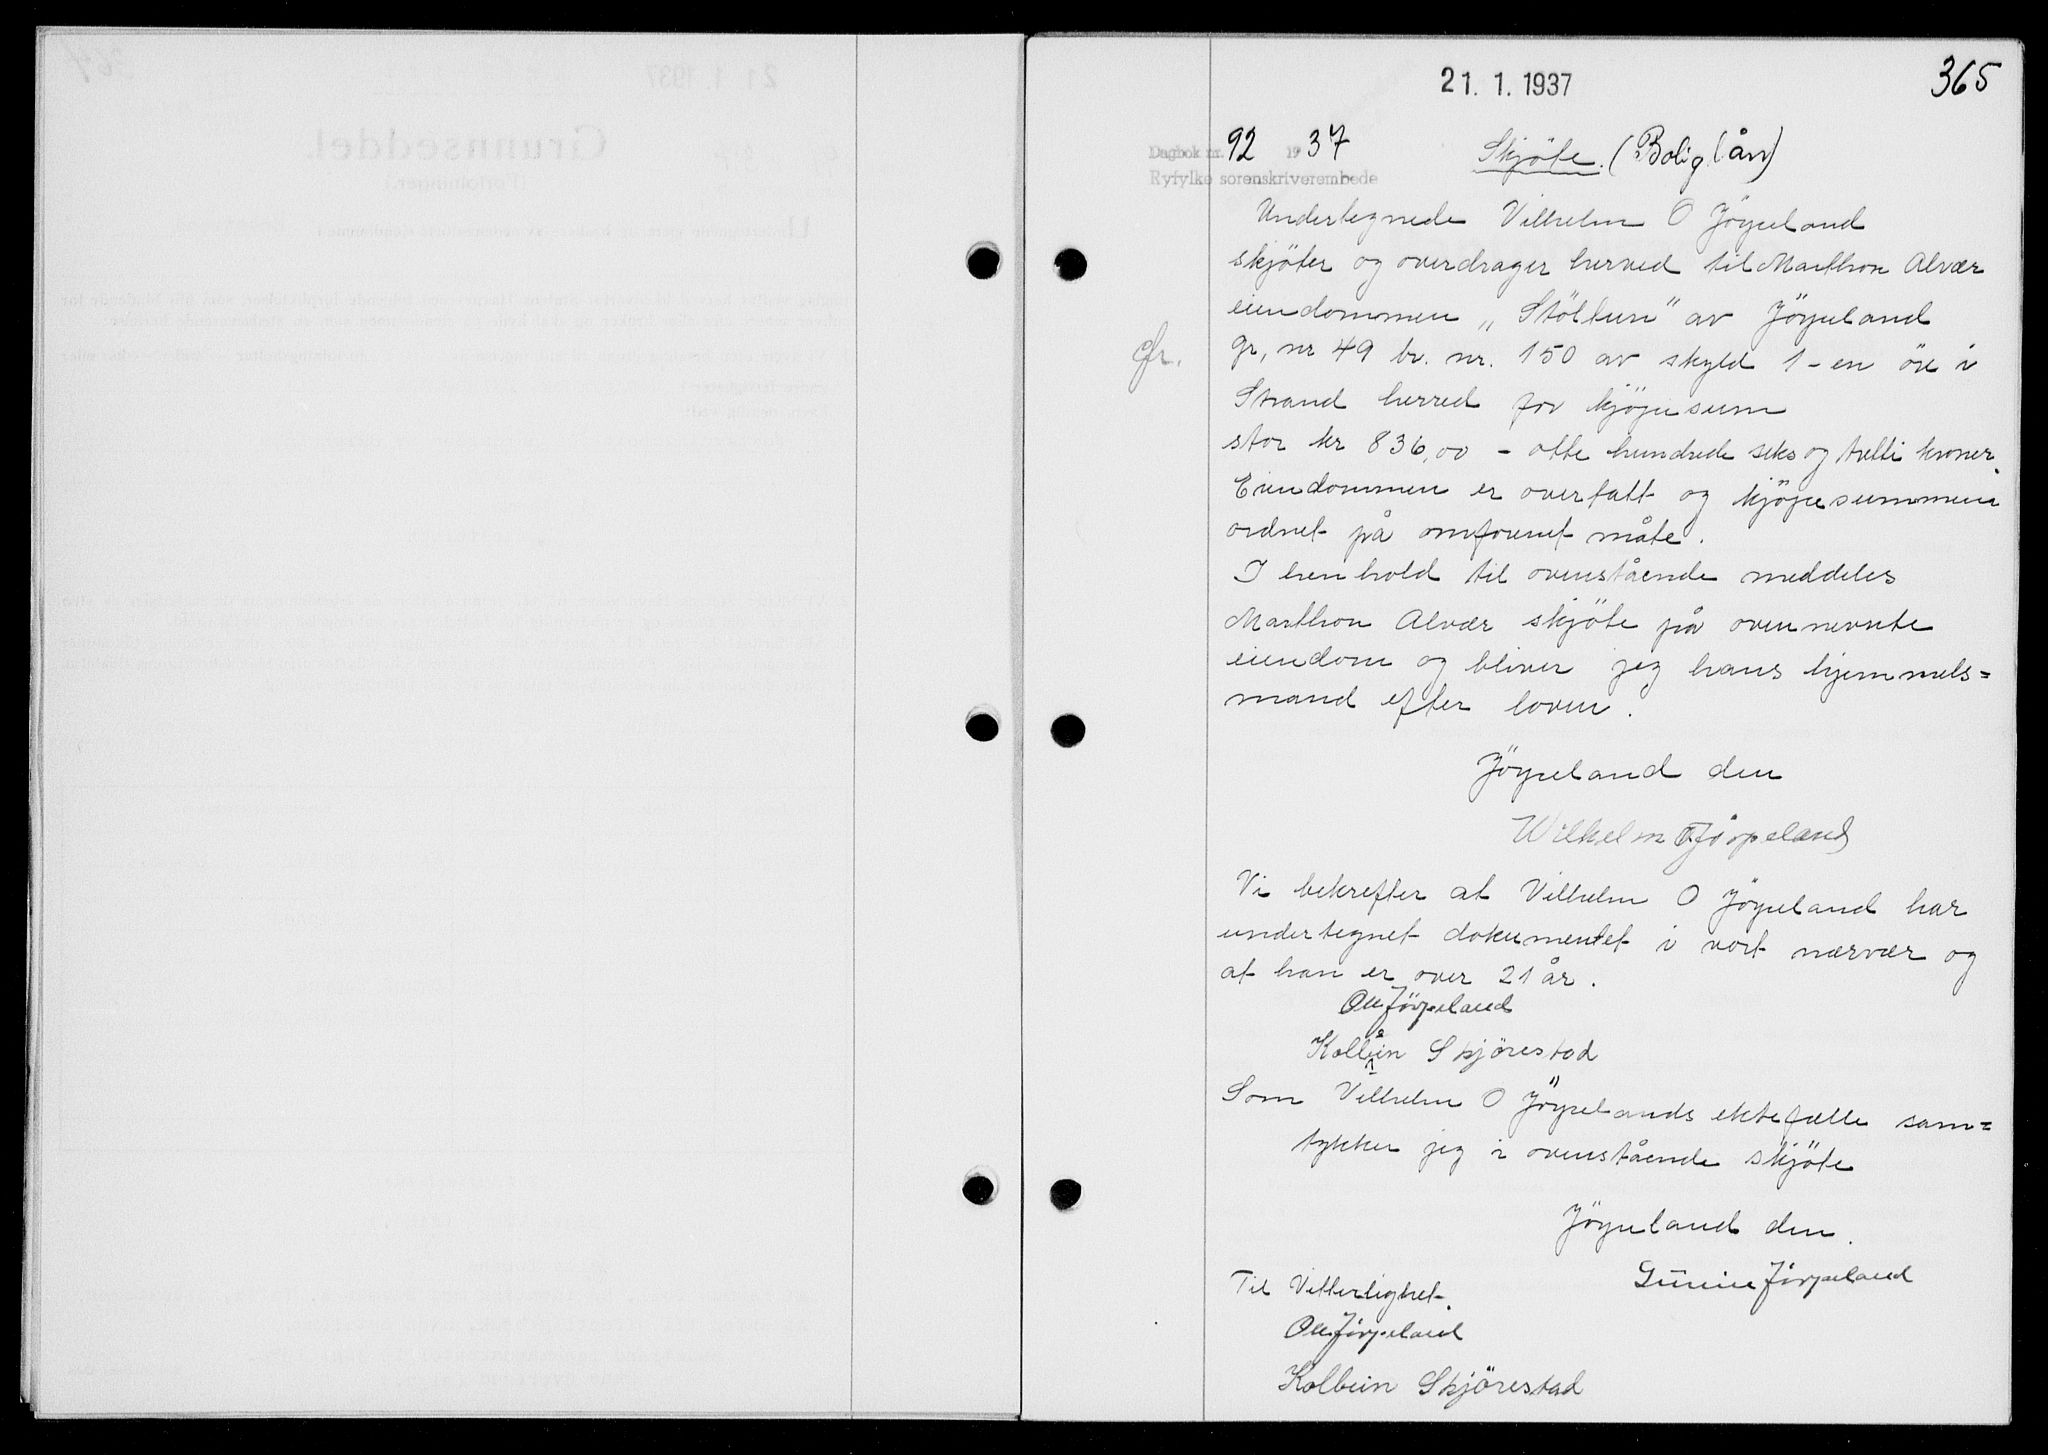 365
21. 1. 1937
Dagbok nr. 92 1937
Ryfylke sorenskriverembede
Skjöte. (Boliglån)
Undertegnede Vilhelm O Jörpeland
skjöter og overdrager herved til Marthon Alvær
eiendommen „Stöltun" av Jörpeland
gr, nr 49 br. nr. 150 av skyld 1 - en öre i
Strand herred for kjöpesum
stor kr 836,00 - otte hundrede seks og tretti kroner.
Eiendommen er overtatt og kjöpesummen
ordnet på omforenet måte.
I henhold til ovenstående meddeles
Marthon Alvær skjöte på ovennevnte
eiendom og bliver jeg hans hjemmels=
mand efter loven.
Jörpeland den
Wilhelm O Jörpeland
Vi bekrefter at Vilhelm O Jörpeland har
undertegnet dokumentet i vort nærvær og
at han er over 21 år.
Ole Jörpeland
Kolbein Skjörestad
Som Vilhelm O Jörpelands ektefælle sam=
tykker jeg i ovenstående skjöte
Jörpeland den.
Gunine Jörpeland
Til Vitterlighet.
Ole Jörpeland
Kolbein Skjörestad